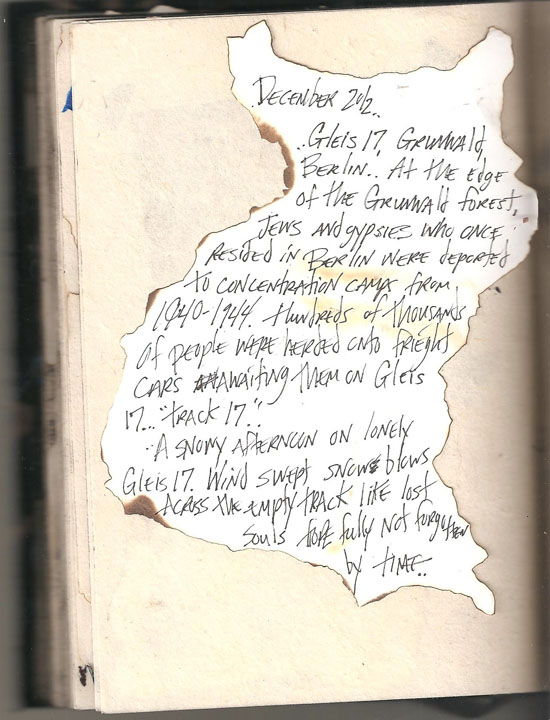 December 2012..
..Gleis 17, Grunwald,
Berlin.. At the edge
of the Grunwald forest,
Jews and gypsies who once
resided in Berlin were deported
to concentration camps from
1940-1944. Hundrids of thousands
of people were herded onto frieght
cars awaiting them on Gleis
17... "track 17"..
..A snowy afternoon on lonely
Gleis 17. Wind swept snows blows
across the empty track like lost
souls hope fully not forgotten
by time..